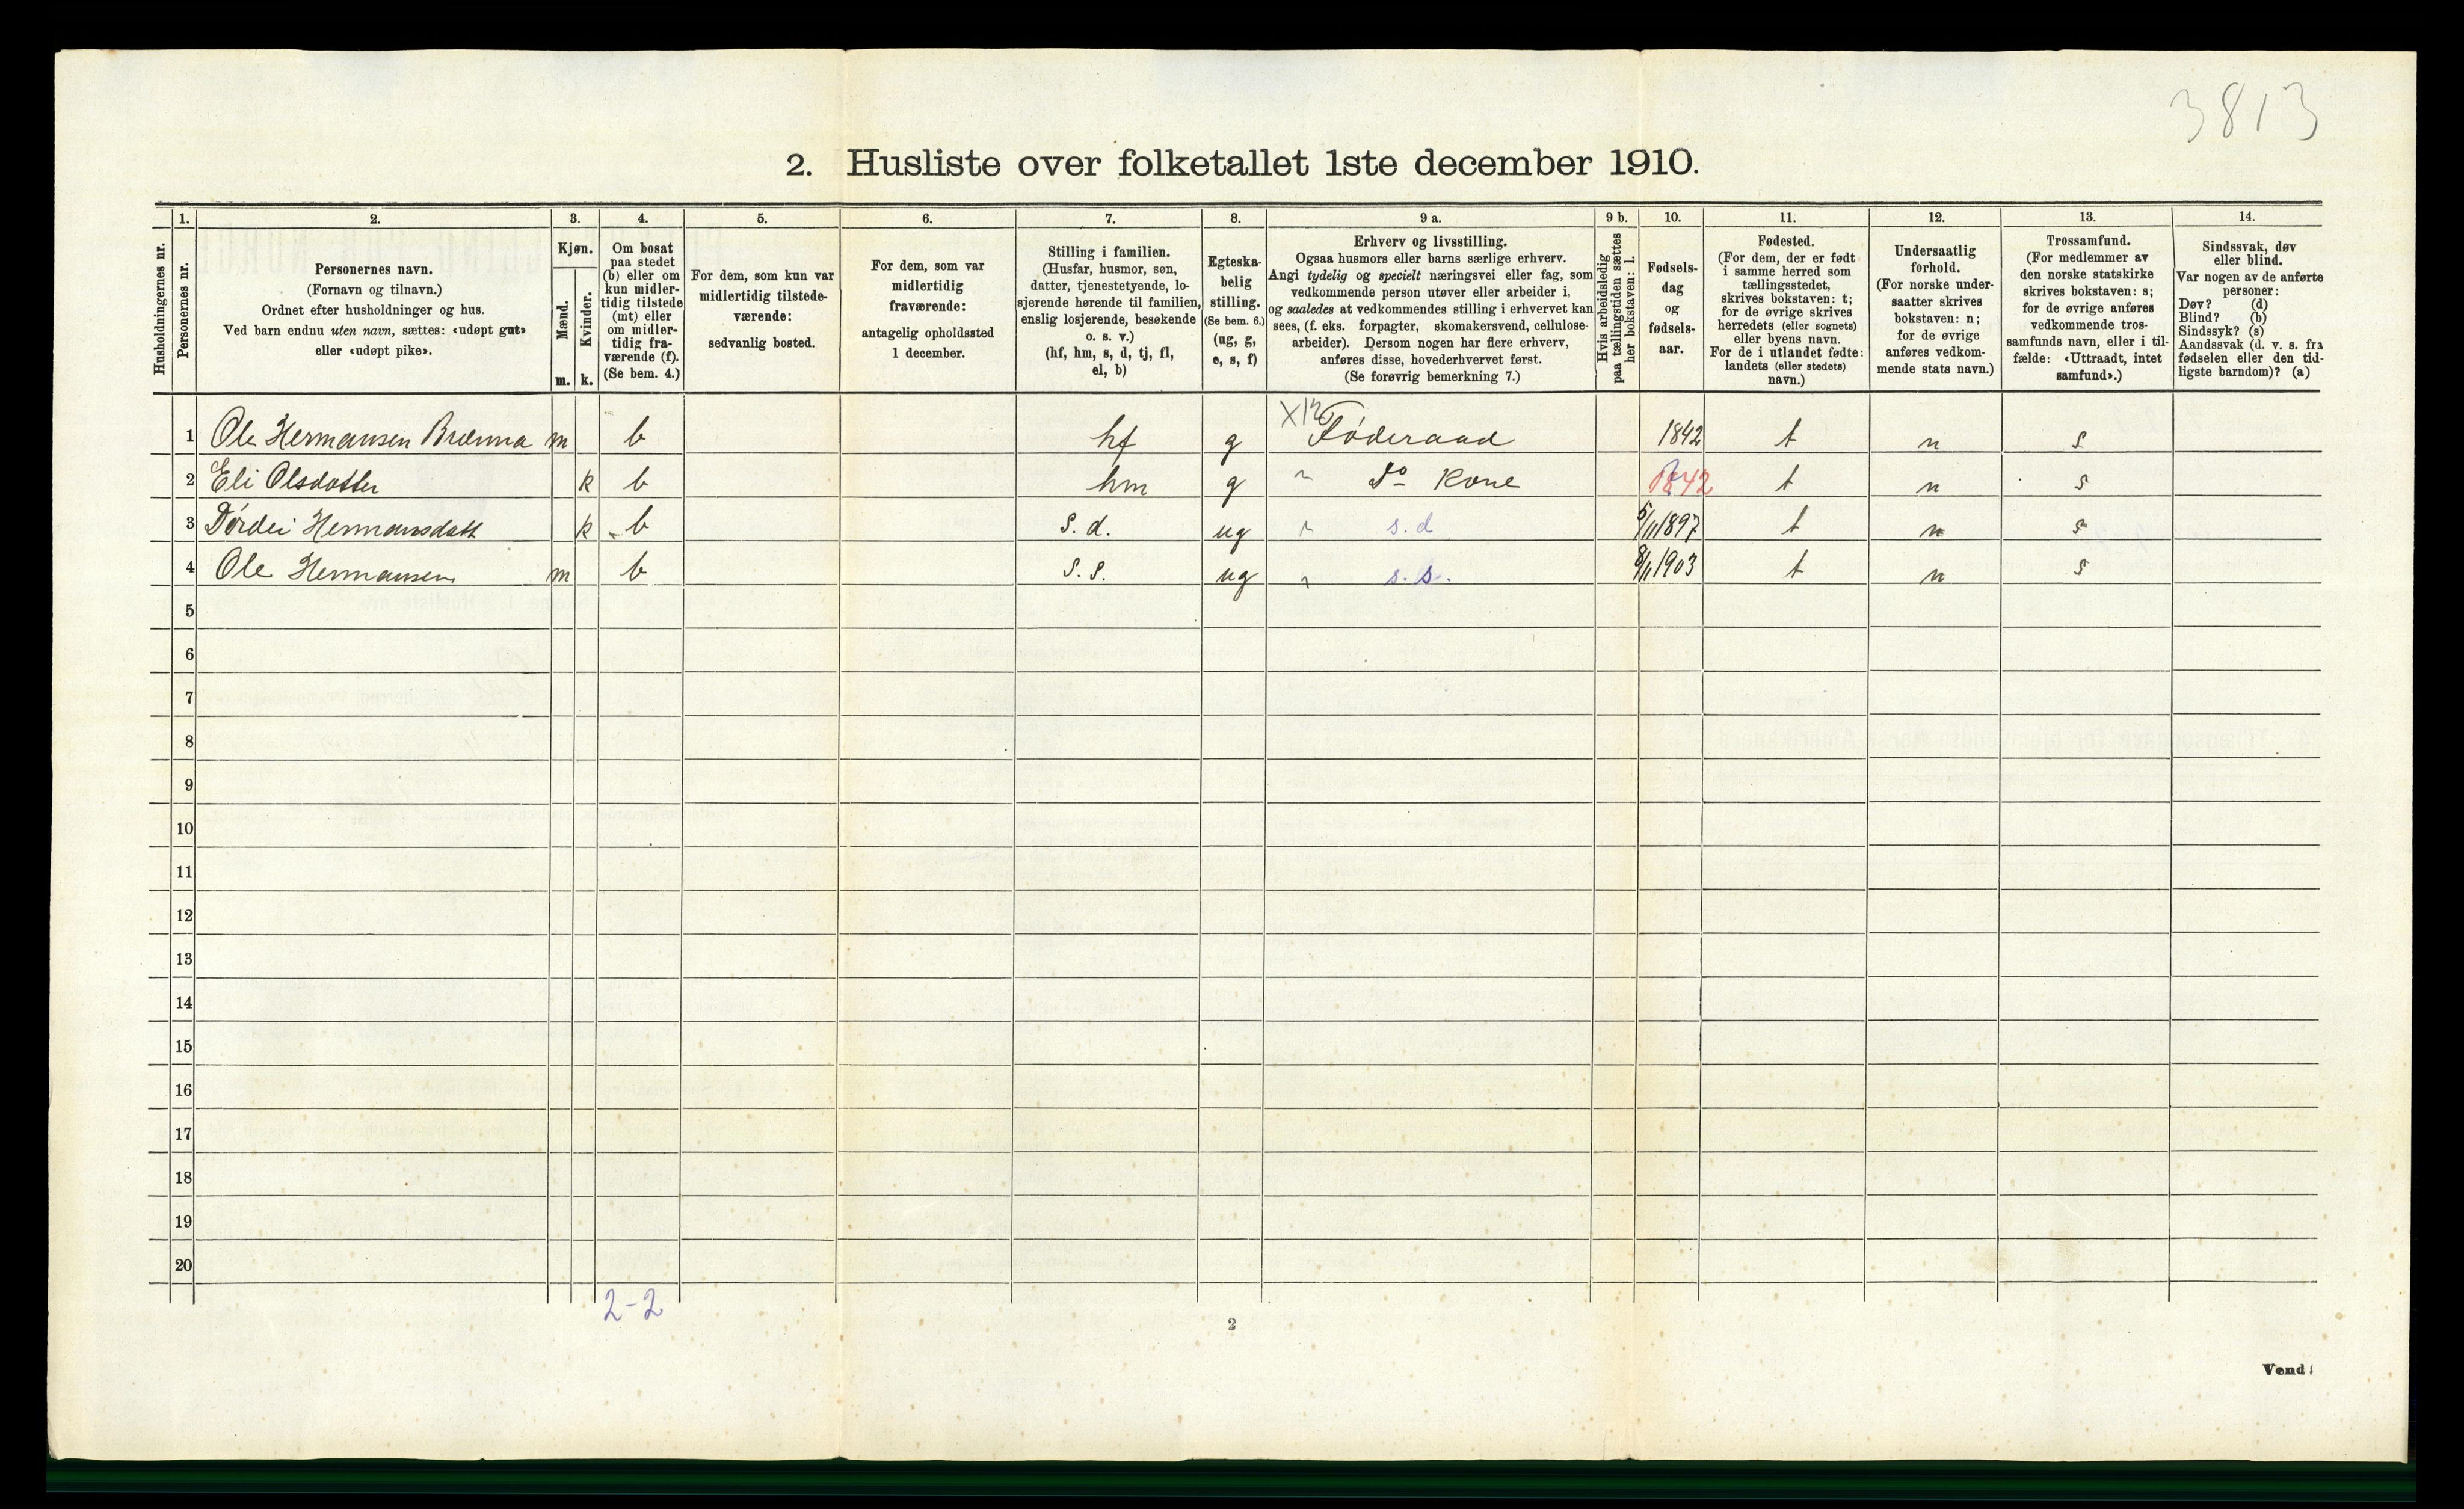 3813
2. Husliste over folketallet 1ste december 1910.
Husholdningernes nr.
1.
Personernes nr.
2.
Personernes navn.
(Fornavn og tilnavn.)
Ordnet efter husholdninger og hus.
Ved barn endnu uten navn, sættes: «udøpt gut»
eller «udøpt pike».
3.
Kjøn.
Mænd.
m.
Kvinder.
k.
4.
Om bosat
paa stedet
(b) eller om
kun midler-
tidig tilstede
(mt) eller
om midler-
tidig fra-
værende (f).
(Se bem. 4.)
5.
For dem, som kun var
midlertidig tilstede-
værende:
sedvanlig bosted.
6.
For dem, som var
midlertidig
fraværende:
antagelig opholdssted
1 december.
7.
Stilling i familien.
(Husfar, husmor, søn,
datter, tjenestetyende, lo-
sjerende hørende til familien,
enslig losjerende, besøkende
o. s. v.)
(hf, hm, s, d, tj, fl,
el, b)
8.
Egteska-
belig
stilling.
(Se bem. 6.)
(ug, g,
e, s, f)
9 a.
Erhverv og livsstilling.
Ogsaa husmors eller barns særlige erhverv.
Angi tydelig og specielt næringsvei eller fag, som
vedkommende person utøver eller arbeider i,
og saaledes at vedkommendes stilling i erhvervet kan
sees, (f. eks. forpagter, skomakersvend, cellulose-
arbeider). Dersom nogen har flere erhverv,
anføres disse, hovederhvervet først.
(Se forøvrig bemerkning 7.)
9 b.
Hvis arbeidsledig
paa tællingstiden sættes
her bokstaven: l.
10.
Fødsels-
dag
og
fødsels-
aar.
11.
Fødested.
(For dem, der er født
i samme herred som
tællingsstedet,
skrives bokstaven: t;
for de øvrige skrives
herredets (eller sognets)
eller byens navn.
For de i utlandet fødte:
landets (eller stedets)
navn.)
12.
Undersaatlig
forhold.
(For norske under-
saatter skrives
bokstaven: n;
for de øvrige
anføres vedkom-
mende stats navn.)
13.
Trossamfund.
(For medlemmer av
den norske statskirke
skrives bokstaven: s;
for de øvrige anføres
vedkommende tros-
samfunds navn, eller i til-
fælde: «Uttraadt, intet
samfund».)
14.
Sindssvak, døv
eller blind.
Var nogen av de anførte
personer:
Døv? (d)
Blind? (b)
Sindssyk? (s)
Aandssvak (d. v. s. fra
fødselen eller den tid-
ligste barndom)? (a)
X12
1 Ole Hermansen Brænna m b hf g Føderaad 1842 t n s
2 Eli Olsdatter k b hm g " Do Kone 1842 t n s
3 Dørdei Hermansdatt k b s. d. ug " s. d 5/11 1897 t n s
4 Ole Hermansen m b s. s. ug " s. s. 8/11 1903 t n s
5
6
7
8
9
10
11
12
13
14
15
16
17
18
19
20
2-2
2
Vend!